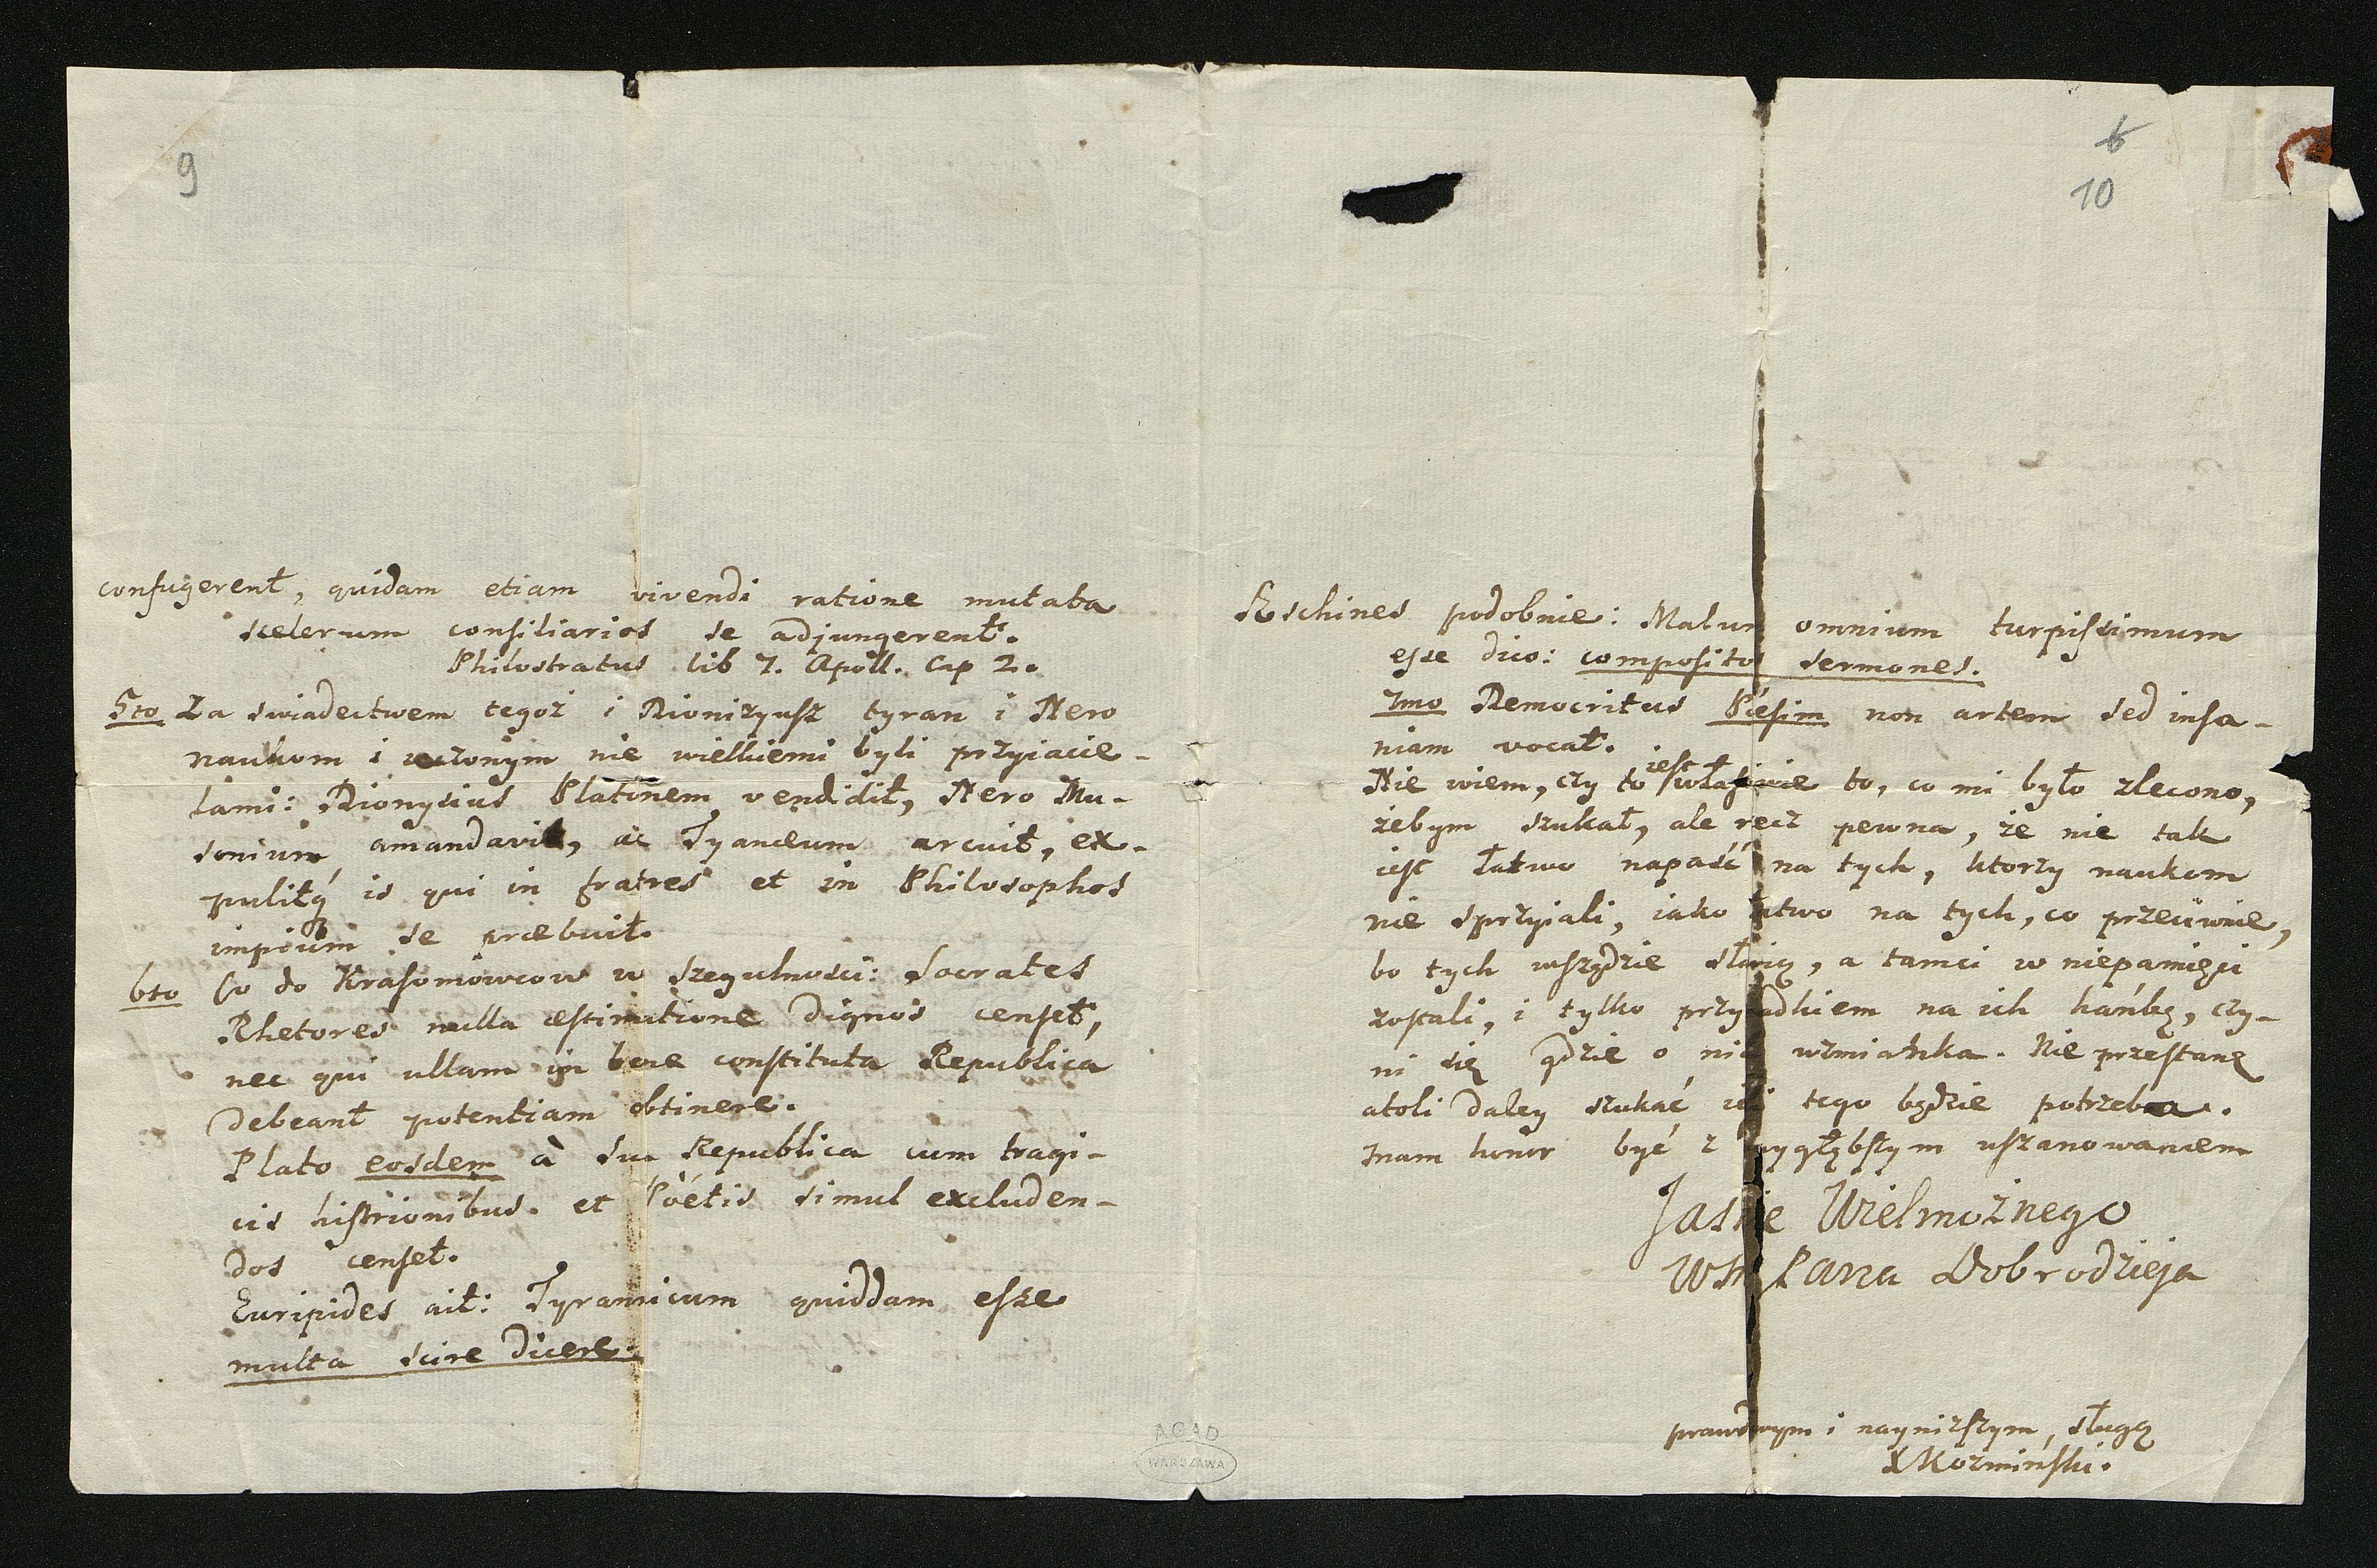 9
confugerent, quidam etiam vivendi ratione mutata
scelerum consiliarios se adjungerent.
Philostratus lib 7. Apoll. Cap 2.
5to Za swiadectwem tegoż i Dionizyusz tyran i Nero
naukom i uczonym nie wielkiemi byli przyiacie-
lami: Dionysius Platonem vendidit, Nero Mu-
sonium amandavit, ac Tyanæum arcuit, ex-
pulitq́ is qui in fratres et in Philosophos
impium se præbuit.
6to Co do Krasomówcow w szegulnosci: Socrates
Rhetores nulla æstimatione dignos censet,
nec qui ullam in bene constituta Republica
debeant potentiam obtinere.
Plato eosdem à sua Republica cum tragi-
cis histrionibus. et Poëtis simul excluden-
dos censet.
Euripides ait: Tyrannicum quiddam esse
multa scire dicere.
ACAD
WARSZAWA
6
10
Æschines podobnie: Malum omnium turpissimum
esse dico: compositos sermones.
7mo Democritus Poësim non artem sed insa-
niam vocat.
Nie wiem, czy to iest właśnie to, co mi było zlecono,
żebym szukał, ale recz pewna, że nie tak
iest łatwo napaść na tych, ktorzy naukom
nie sprzyiali, iako łatwo na tych, co przeciwnie,
bo tych wszędzie sławią, a tamci w niepamięci
zostali, i tylko przypadkiem na ich hańbę, czy-
ni się gdzie o nich wzmianka. Nie przestanę
atoli daley szukać ieśli tego będzie potrzeba.
Mam honor być z naygłębszym uszanowaniem
Jasnie Wielmożnego
WM Pana Dobrodzieja
prawdziwym i nayniższym, sługą
X Kozmiński.